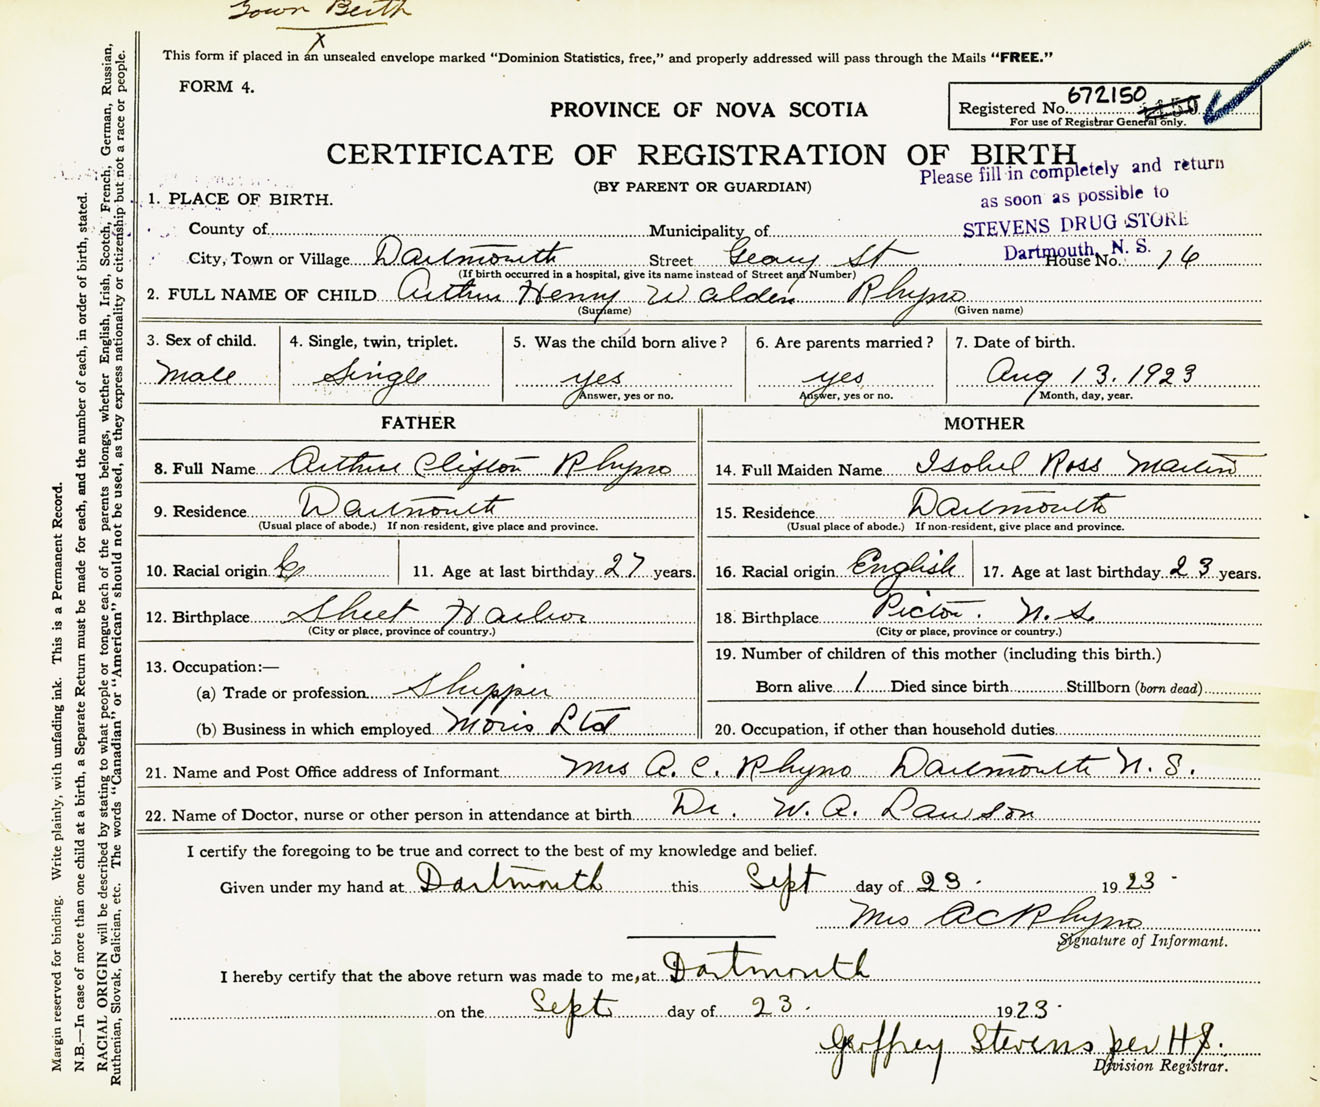 Town Berth
X
This form if placed in an unsealed envelope marked "Dominion Statistics, free," and properly addressed will pass through the Mails "FREE."
FORM 4.
PROVINCE OF NOVA SCOTIA
Registered No. 672150
For use of Registrar General only.
CERTIFICATE OF REGISTRATION OF BIRTH
(BY PARENT OR GUARDIAN)
Please fill in completely and return
as soon as possible to
STEVENS DRUG STORE
Dartmouth, N. S.
1. PLACE OF BIRTH.
County of Municipality of
City, Town or Village Dartmouth Street Geary St House No. 16
(If birth occurred in a hospital, give its name instead of Street and Number)
2. FULL NAME OF CHILD Arthur Henry Walden Rhyno
(Surname) (Given name)
3. Sex of child. 4. Single, twin, triplet. 5. Was the child born alive? 6. Are parents married? 7. Date of birth.
Male Single yes yes Aug 13. 1923
Answer, yes or no. Answer, yes or no. Month, day, year.
FATHER MOTHER
8. Full Name Arthur Clifton Rhyno 14. Full Maiden Name Isobel Ross Martin
9. Residence Dartmouth 15. Residence Dartmouth
(Usual place of abode.) If non-resident, give place and province. (Usual place of abode.) If non-resident, give place and province.
10. Racial origin 11. Age at last birthday 27 years. 16. Racial origin English 17. Age at last birthday 23 years.
12. Birthplace Sheet Harbor 18. Birthplace Pictou. N. S.
(City or place, province of country.) (City or place, province or country.)
13. Occupation:— 19. Number of children of this mother (including this birth.)
(a) Trade or profession Shipper Born alive 1 Died since birth Stillborn (born dead)
(b) Business in which employed Moirs Ltd 20. Occupation, if other than household duties
21. Name and Post Office address of Informant Mrs A. C. Rhyno Dartmouth N. S.
22. Name of Doctor, nurse or other person in attendance at birth Dr. W. A. Lawson
I certify the foregoing to be true and correct to the best of my knowledge and belief.
Given under my hand at Dartmouth this Sept day of 23. 19 23
Mrs A C Rhyno
Signature of Informant.
I hereby certify that the above return was made to me, at Dartmouth
on the Sept day of 23. 1923.
Geoffrey Stevens per H S.
Division Registrar.
Margin reserved for binding. Write plainly, with unfading ink. This is a Permanent Record.
N.B.—In case of more than one child at a birth, a Separate Return must be made for each, and the number of each, in order of birth, stated.
RACIAL ORIGIN will be described by stating to what people or tongue each of the parents belongs, whether English, Irish, Scotch, French, German, Russian,
Ruthenian, Slovak, Galician, etc. The words "Canadian" or "American" should not be used, as they express nationality or citizenship but not a race or people.